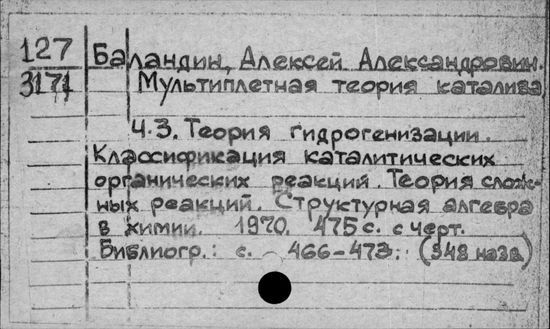 127 Баландин, Алексей Александрович.
3171 Мультиплетная теория катализа
Ч.3. Теория гидрогенизации.
Классификация каталитических
органических реакций. Теория слож-
ных реакций. Структурная алгебра
в химии. 1970. 475 с. с черт.
Библиогр.: с. 466-473. (348 назв)